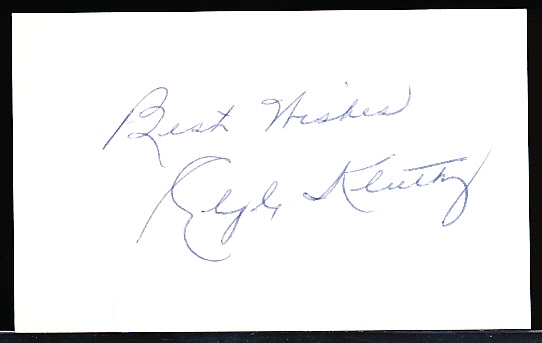 Best Wishes
Clyde Kluttz